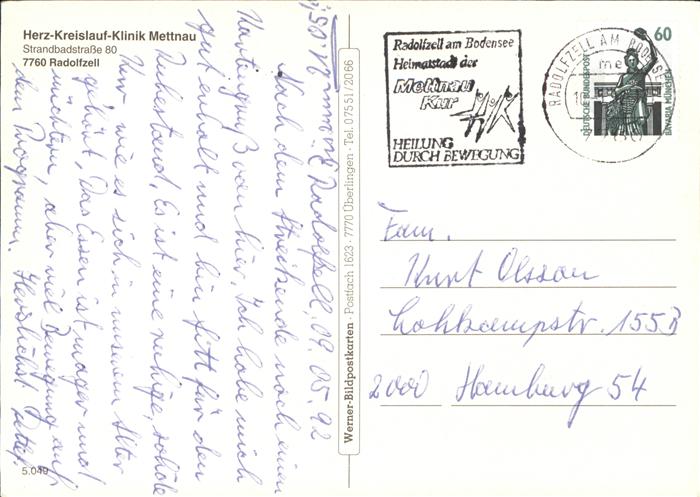 Herz-Kreislauf-Klinik Mettnau
Strandbadstraße 80
7760 Radolfzell
Radolfzell, 09.05.92
Nach dem Streikende noch einen
Kartengruß von hier. Ich habe mich
gut erholt und bin fitt für den
Ruhestand. Es ist eine ruhige, schöne
Kur wie es sich in unserem Alter
gehört. Das Essen ist mager und
nüchtern, aber viel Bewegung auf
dem Programm. Herzlichst
5.049
Werner-Bildpostkarten · Postfach 1623 · 7770 Überlingen · Tel. 07551/2066
Radolfzell am Bodensee
Heimatstadt der
Mettnau
Kur
HEILUNG
DURCH BEWEGUNG
RADOLFZELL AM BODENSEE
me
7760
60
DEUTSCHE BUNDESPOST
BAVARIA MÜNCHEN
Fam.
Kurt Olsson
Lohkampstr. 155B
2000 Hamburg 54